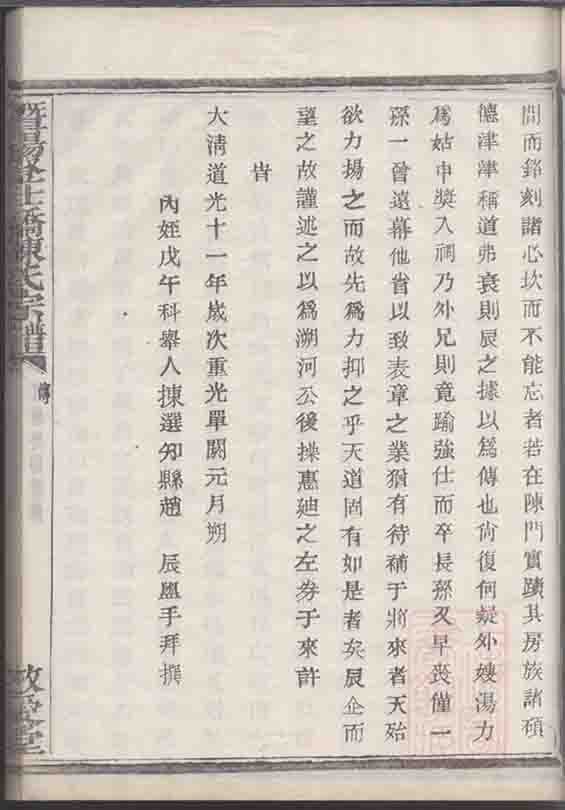 間而銘刻諸心坎而不能忘者若在陳門實蹟其房族諸碩
德津津稱道弗衰則辰之據以為傳也尚復何疑外嫂湯力
為姑申獎入祠乃外兄則竟踰強仕而卒長孫又早喪僅一
孫一曾遠幕他省以致表章之業猶有待補于將來者天殆
欲力揚之而故先為力抑之乎天道固有如是者矣辰企而
望之故謹述之以為溯河公後操惠廸之左券于來許
旹
大清道光十一年歲次重光單閼元月朔
內姪戊午科舉人揀選知縣趙 辰㫤手拜撰
暨陽金士橋陳氏宗譜
傳
敦睦堂